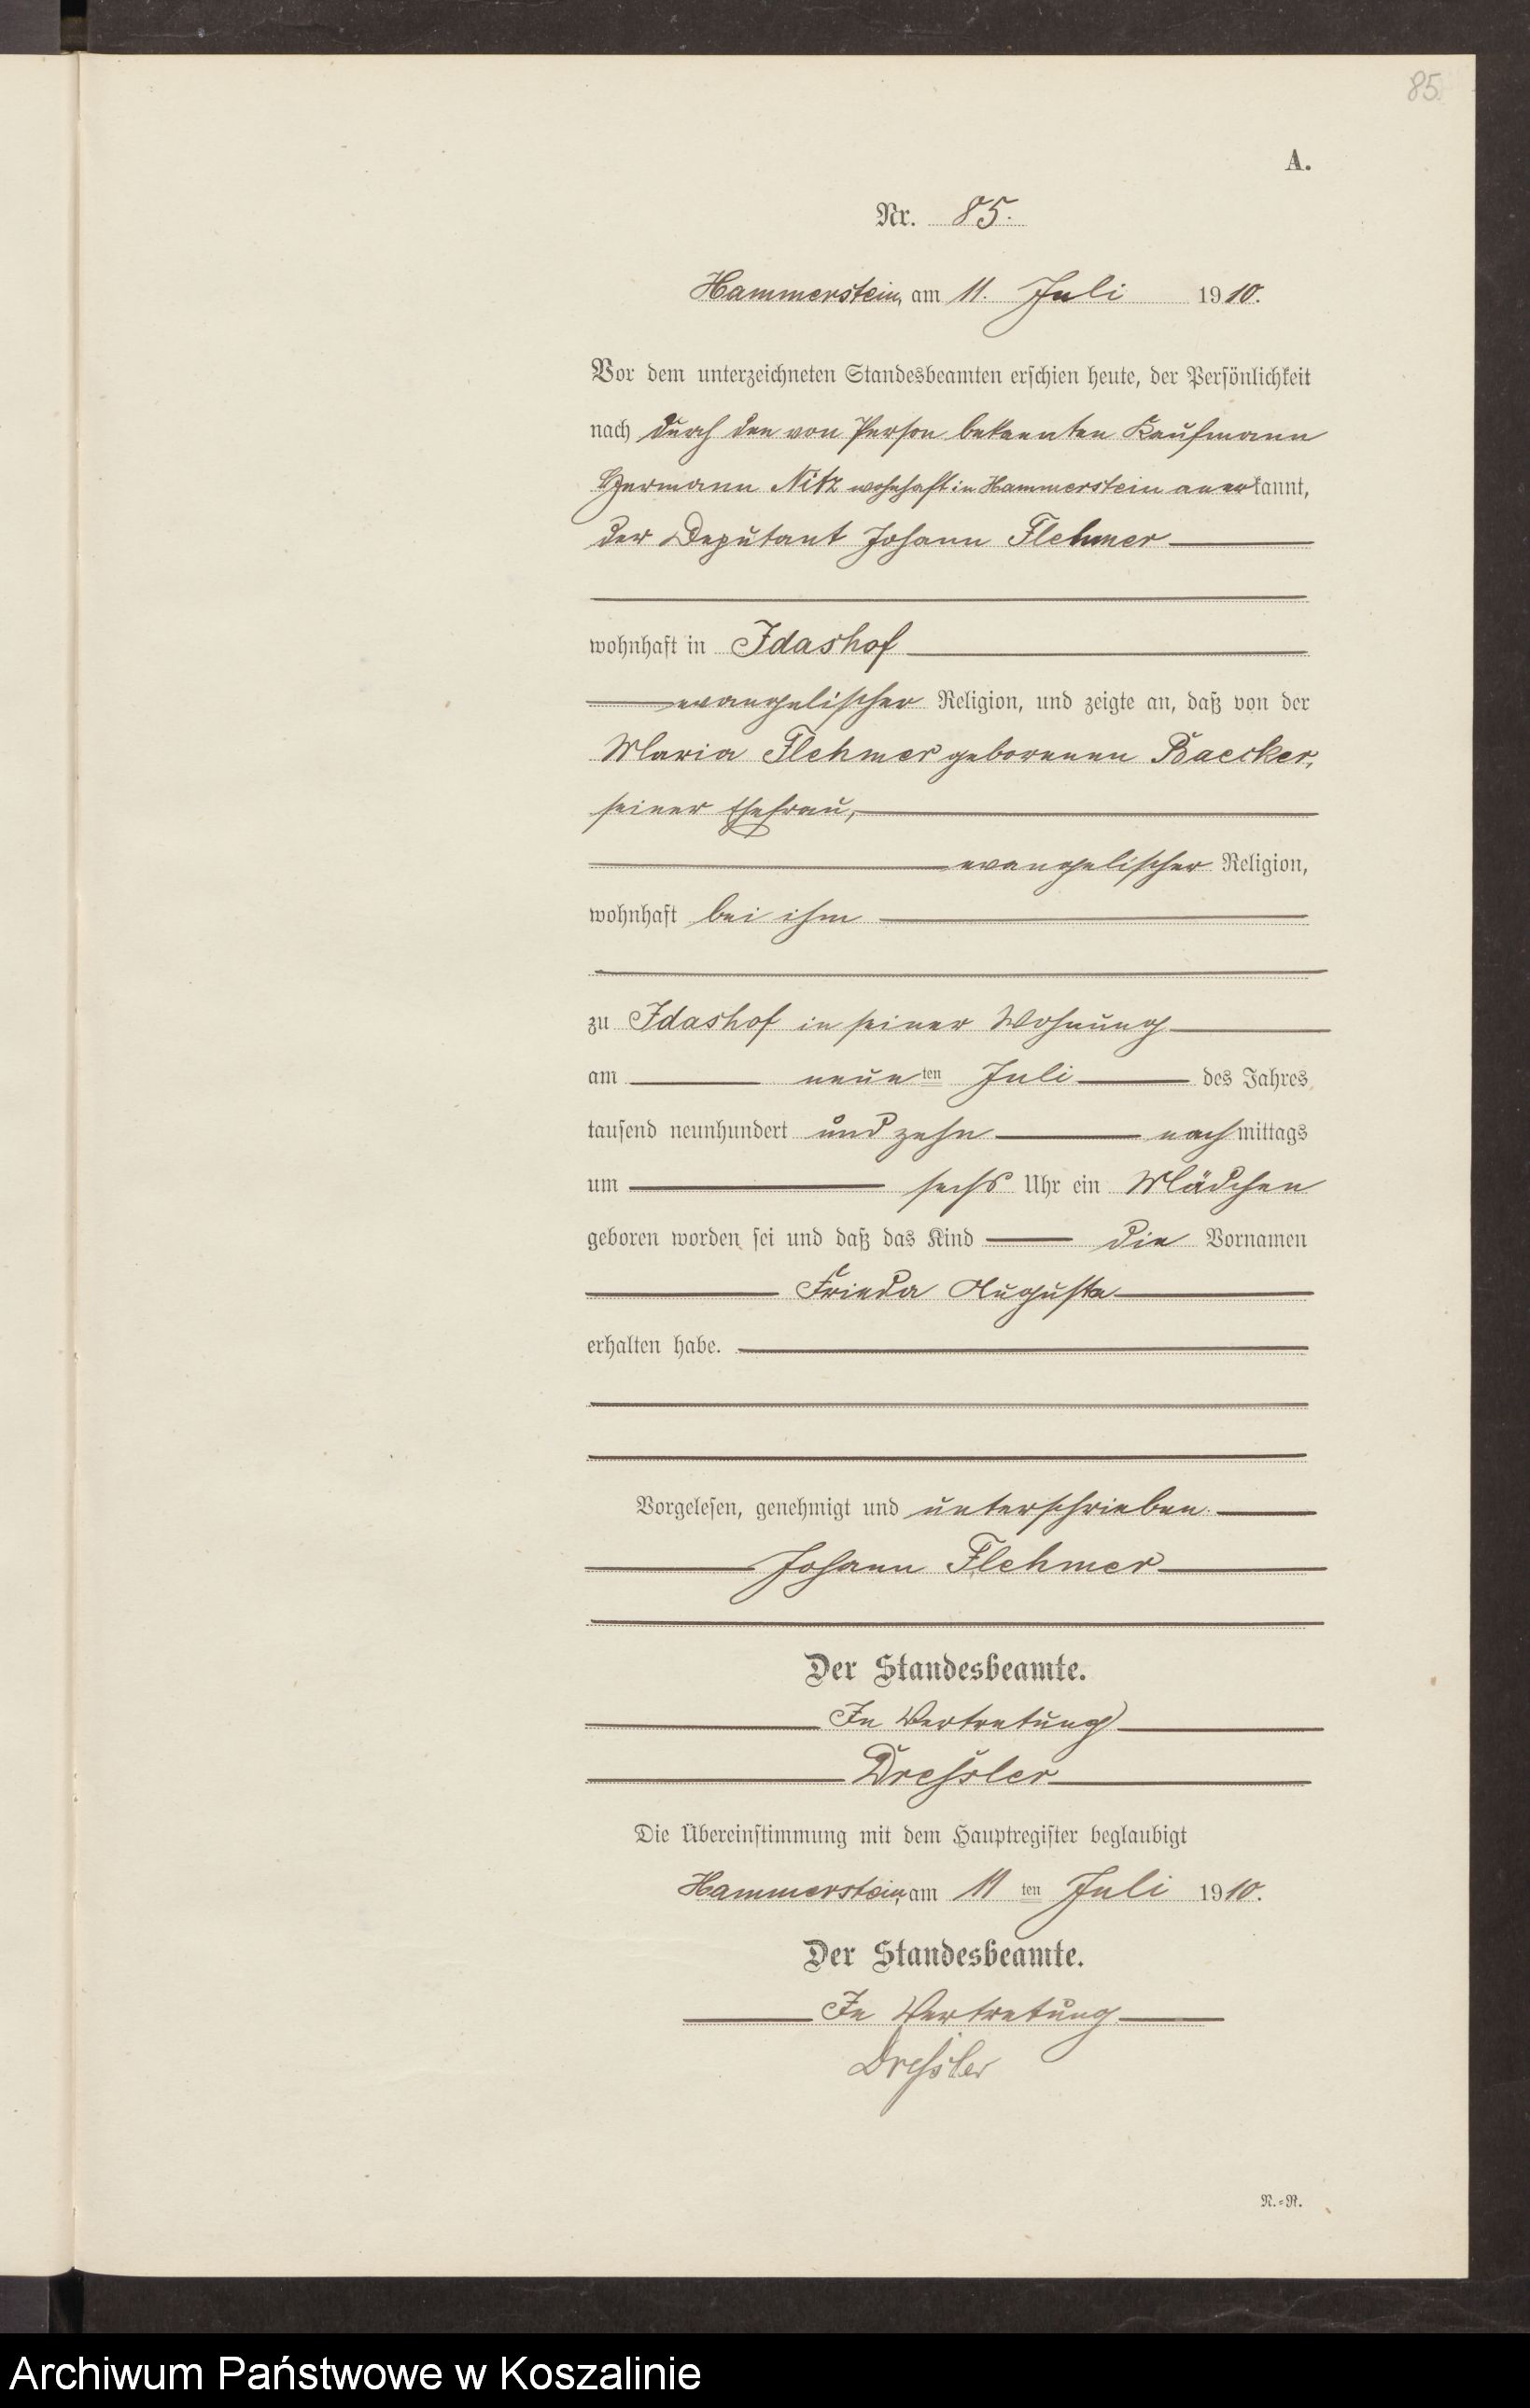 85.
A.
Nr. 85.
Hammerstein, am 11. Juli 1910.
Vor dem unterzeichneten Standesbeamten erschien heute, der Persönlichkeit
nach durch den von Person bekannten Kaufmann
Hermann Nitz wohnhaft in Hammerstein anerkannt,
der Deputant Johann Flehmer
wohnhaft in Idashof
evangelischer Religion, und zeigte an, daß von der
Maria Flehmer geborenen Baecker,
seiner Ehefrau,
evangelischer Religion,
wohnhaft bei ihm
zu Idashof in seiner Wohnung
am neunten Juli des Jahres
tausend neunhundert und zehn nachmittags
um sechs Uhr ein Mädchen
geboren worden sei und daß das Kind die Vornamen
Frieda Auguste
erhalten habe.
Vorgelesen, genehmigt und unterschrieben.
Johann Flehmer
Der Standesbeamte.
In Vertretung
Dressler
Die Übereinstimmung mit dem Hauptregister beglaubigt
Hammerstein, am 11ten Juli 1910.
Der Standesbeamte.
In Vertretung
Dressler
N.-R.
Archiwum Państwowe w Koszalinie